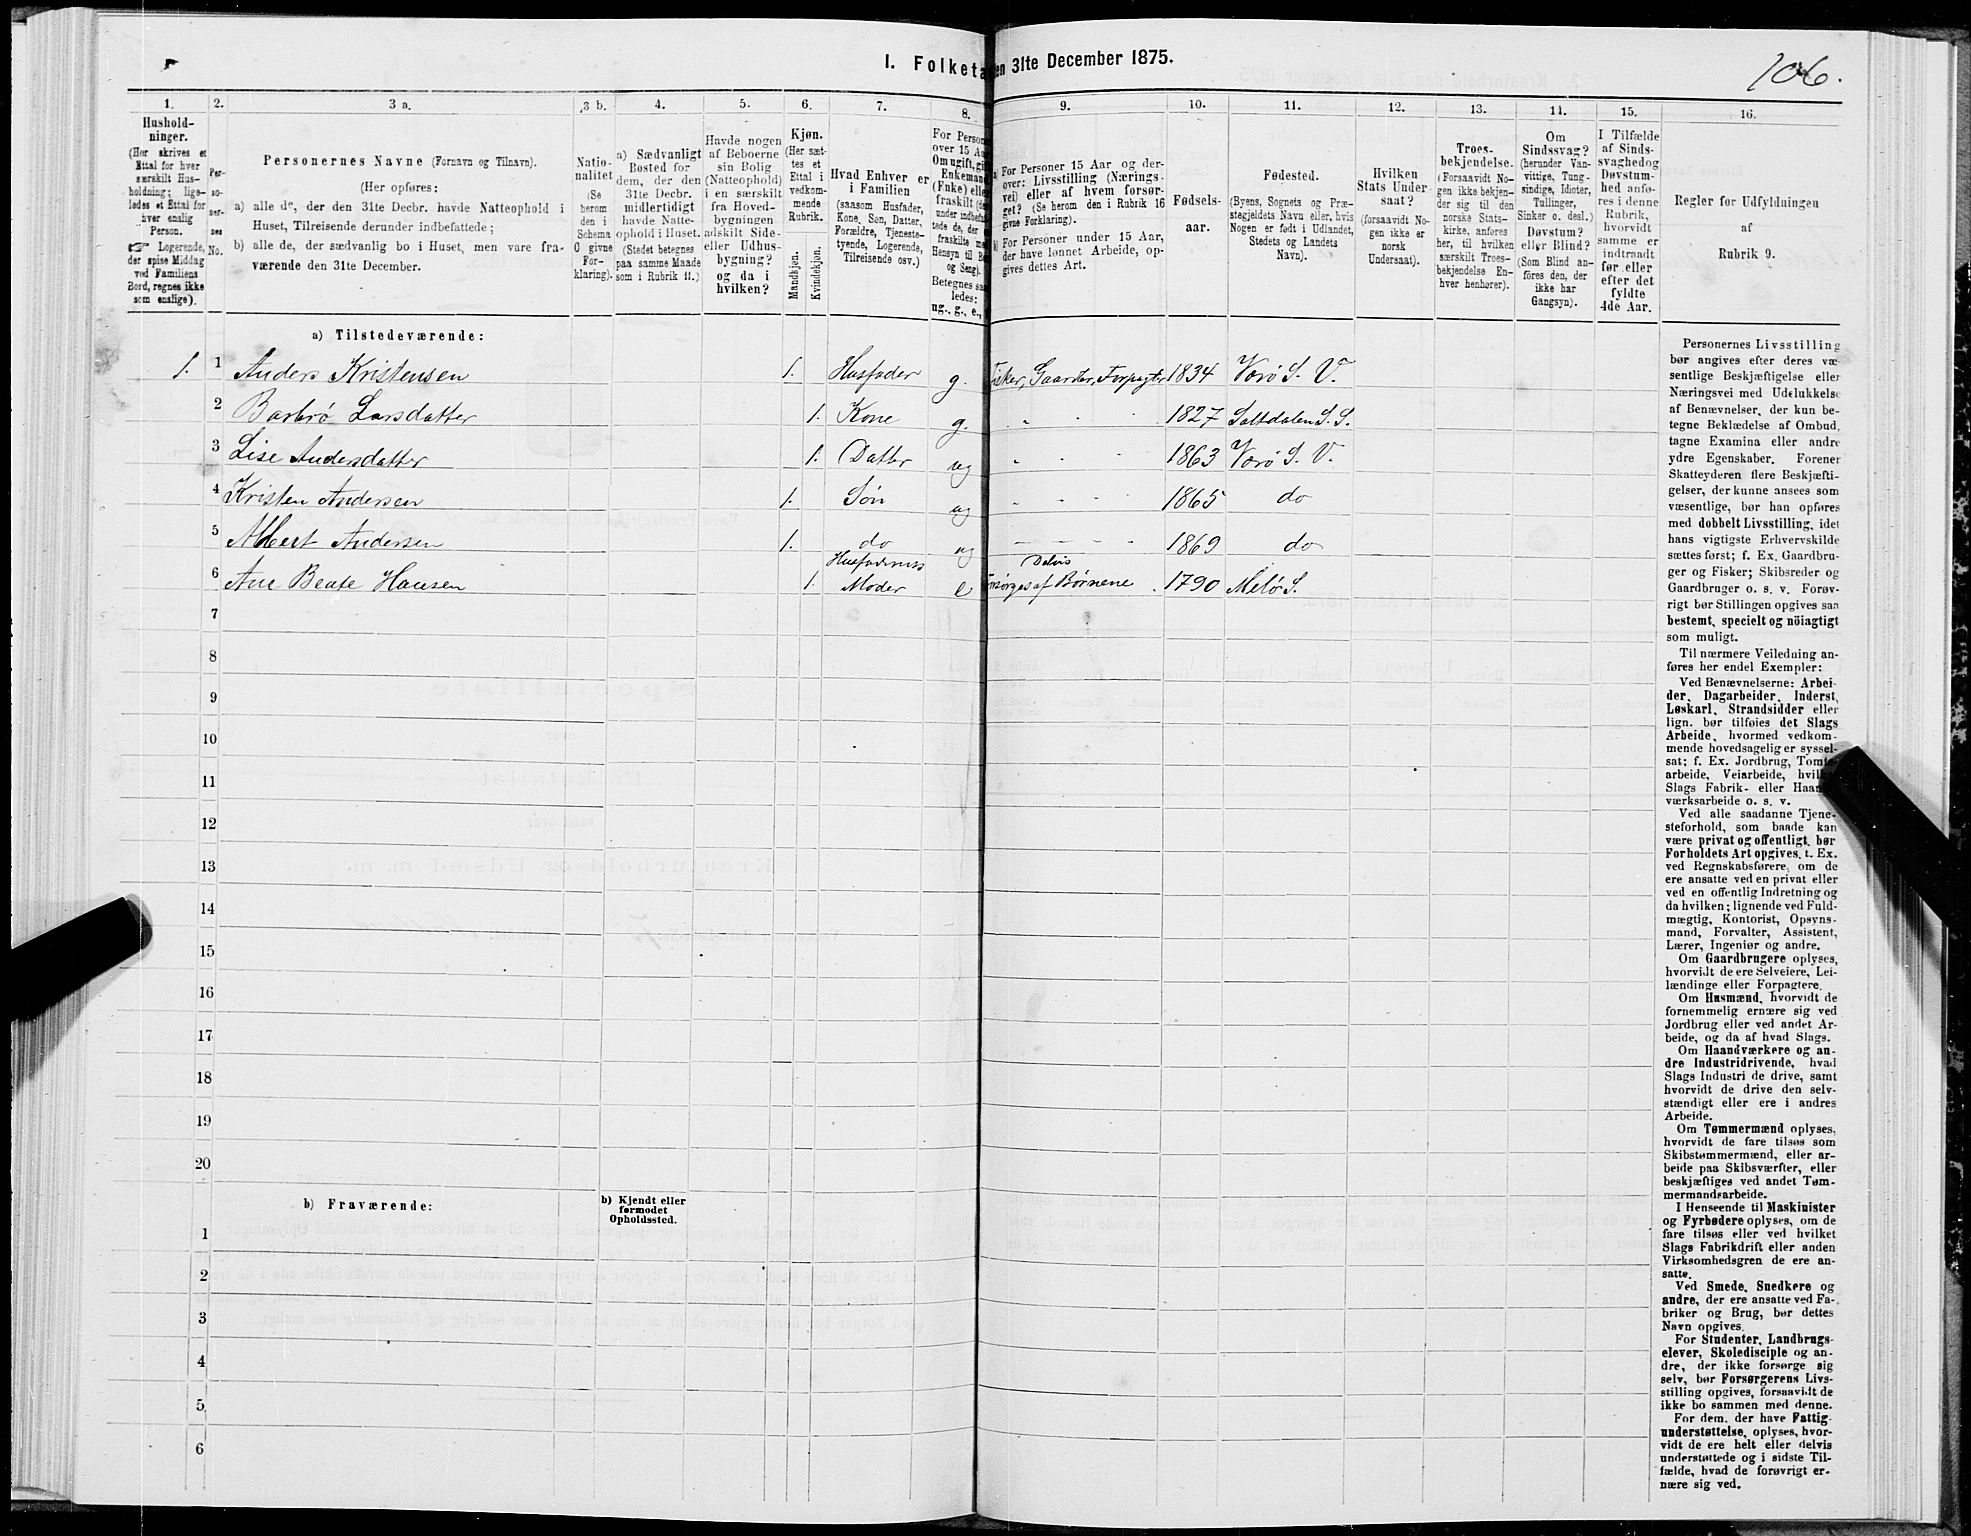 I. Folketa
en 31te December 1875.
106.
1.
2.
3 a.
3 b.
4.
5.
6.
7.
8.
9.
10.
11.
12.
13.
14.
15.
16.
Hushold-
ninger.
(Her skrives et
Ettal for hver
særskilt Hus-
holdning; lige-
ledes et Ettal for
hver enslig
Person.
☞ Logerende,
der spise Middag
ved Familiens
Bord, regnes ikke
som enslige).
Per-
so-
ner-
nes
No.
Personernes Navne (Fornavn og Tilnavn).
(Her opføres:
a) alle de, der den 31te Decbr. havde Natteophold i
Huset, Tilreisende derunder indbefattede;
b) alle de, der sædvanlig bo i Huset, men vare fra-
værende den 31te December.
Natio-
nalitet
(Se
herom
den i
Schema
O givne
For-
klaring).
a) Sædvanligt
Bosted for
dem, der den
31te Decbr.
midlertidigt
havde Natte-
ophold i Huset.
(Stedet betegnes
paa samme Maade
som i Rubrik 11.)
Havde nogen
af Beboerne
sin Bolig
(Natteophold)
i en særskilt
fra Hoved-
bygningen
adskilt Side-
eller Udhus-
bygning?
og da i
hvilken?
Kjøn.
(Her sæt-
tes et
Ettal i
vedkom-
mende
Rubrik.
Mandkjøn.
Kvindekjøn.
Hvad Enhver er
i Familien
(saasom Husfader,
Kone, Søn, Datter,
Forældre, Tjeneste-
tyende, Logerende,
Tilreisende osv.)
For Person
over 15 Aa
Om ugift, gi
Enkemand
(Enke) elle
fraskilt (de
under indbefat-
tede de, der
fraskilte me
Hensyn til Bo
og Seng).
Betegnes saa
ledes:
ug., g., e.,
a) For Personer 15 Aar og der-
over: Livsstilling (Nærings-
vei) eller af hvem forsør-
get? (Se herom den i Rubrik 16
givne Forklaring).
b) For Personer under 15 Aar,
der have lønnet Arbeide, op-
gives dettes Art.
Fødsels-
aar.
Fødested.
(Byens, Sognets og Præ-
stegjeldets Navn eller, hvis
Nogen er født i Udlandet,
Stedets og Landets
Navn).
Hvilken
Stats Under-
saat?
(forsaavidt No-
gen ikke er
norsk
Undersaat).
Troes-
bekjendelse.
(Forsaavidt No-
gen ikke bekjen-
der sig til den
norske Stats-
kirke, anføres
her, til hvilken
særskilt Troes-
bekjendelse En-
hver henhører).
Om
Sindssvag?
(herunder Van-
vittige, Tung-
sindige, Idioter,
Tullinger,
Sinker o. desl.)
Døvstum?
eller Blind?
(Som Blind an-
føres den, der
ikke har
Gangsyn).
I Tilfælde
af Sinds-
svaghed og
Døvstum-
hed anfø-
res i denne
Rubrik,
hvorvidt
samme er
indtraadt
før eller
efter det
fyldte
4de Aar.
Regler for Udfyldningen
af
Rubrik 9.
a) Tilstedeværende:
1. 1 Anders Kristensen 1. Husfader g. Fisker, Gaardbr, Forpagter 1834 Værø S. V.
2 Barbrø Larsdatter 1. Kone g. " " 1827 Saltdalen S. S.
3 Lise Andersdatter 1. Datter ug " " " 1863 Værø S. V.
4 Kristen Andersen 1. Søn ug " " " 1865 do
5 Albert Andersen 1. do ug 1869 do
Husfaderens Delvis
6 Ane Beate Hansen 1. Moder e Forsørges af Børnene 1790 Melø S.
7
8
9
10
11
12
13
14
15
16
17
18
19
20
b) Fraværende:
b) Kjendt eller
formodet
Opholdssted.
1
2
3
4
5
6
Personernes Livsstilling
bør angives efter deres væ-
sentlige Beskjæftigelse eller
Næringsvei med Udelukkelse
af Benævnelser, der kun be-
tegne Beklædelse af Ombud,
tagne Examina eller andre
ydre Egenskaber. Forener
Skatteyderen flere Beskjæfti-
gelser, der kunne ansees som
væsentlige, bør han opføres
med dobbelt Livsstilling, idet
hans vigtigste Erhvervskilde
sættes først; f. Ex. Gaardbru-
ger og Fisker; Skibsreder og
Gaardbruger o. s. v. Forøv-
rigt bør Stillingen opgives saa
bestemt, specielt og nöiagtigt
som muligt.
Til nærmere Veiledning an-
føres her endel Exempler:
Ved Benævnelserne: Arbei-
der, Dagarbeider, Inderst,
Løskarl, Strandsidder eller
lign. bør tilføies det Slags
Arbeide, hvormed vedkom-
mende hovedsagelig er syssel-
sat; f. Ex. Jordbrug, Tomte-
arbeide, Veiarbeide, hvilket
Slags Fabrik- eller Haand-
værksarbeide o. s. v.
Ved alle saadanne Tjene-
steforhold, som baade kan
være privat og offentligt, bør
Forholdets Art opgives, t. Ex.
ved Regnskabsførere, om de
ere ansatte ved en privat eller
ved en offentlig Indretning og
da hvilken; lignende ved Fuld-
mægtig, Kontorist, Opsyns-
mand, Forvalter, Assistent,
Lærer, Ingeniør og andre.
Om Gaardbrugere oplyses,
hvorvidt de ere Selveiere, Lei-
lændinge eller Forpagtere.
Om Husmænd, hvorvidt de
fornemmelig ernære sig ved
Jordbrug eller ved andet Ar-
beide, og da af hvad Slags.
Om Haandværkere og an-
dre Industridrivende, hvad
Slags Industri de drive, samt
hvorvidt de drive den selv-
stændigt eller ere i andres
Arbeide.
Om Tømmermænd oplyses,
hvorvidt de fare tilsøs som
Skibstømmermænd, eller ar-
beide paa Skibsværfter, eller
beskjæftiges ved andet Tøm-
mermandsarbeide.
I Henseende til Maskinister
og Fyrbødere oplyses, om de
fare tilsøs eller ved hvilket
Slags Fabrikdrift eller anden
Virksomhedsgren de ere an-
satte.
Ved Smede, Snedkere og
andre, der ere ansatte ved Fa-
briker og Brug, bør dettes
Navn opgives.
For Studenter, Landbrugs-
elever, Skoledisciple og an-
dre, der ikke forsørge sig
selv, bør Forsørgerens Livs-
stilling opgives, forsaavidt de
ikke bo sammen med denne.
For dem, der have Fattig-
understøttelse, oplyses, hvor-
vidt de ere helt eller delvis
understøttede og i sidste Til-
fælde, hvad de forøvrigt er-
nære sig ved.